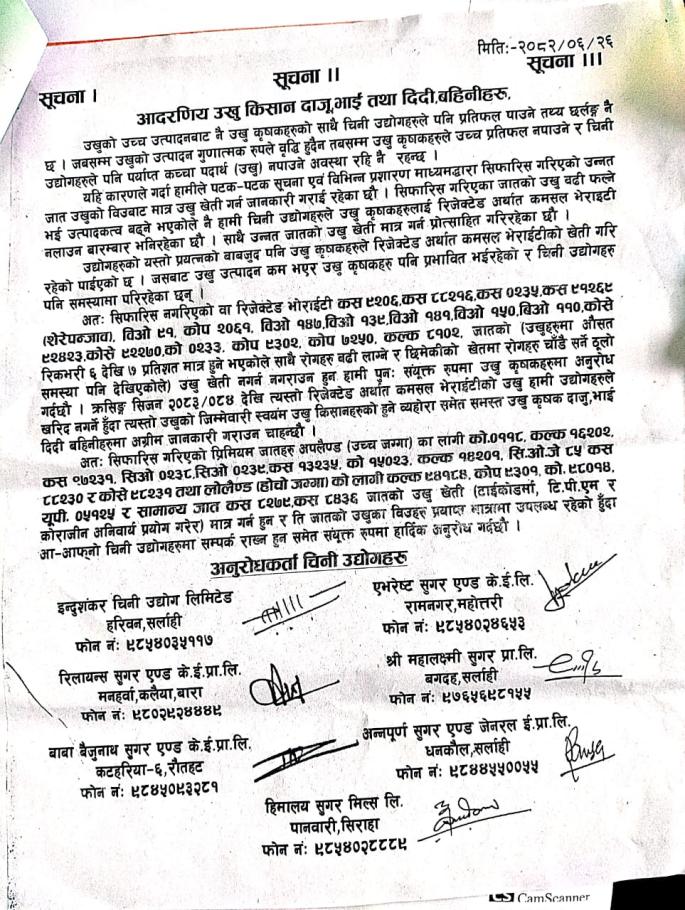 मितिः-२०८२/०६/२६
सूचना । सूचना ।। सूचना ।।।
आदरणिय उखु किसान दाजु,भाई तथा दिदी,बहिनीहरू,
उखुको उच्च उत्पादनबाट नै उखु कृषकहरुको साथै चिनी उद्योगहरुले पनि प्रतिफल पाउने तथ्य छर्लङ्ग नै
छ । जबसम्म उखुको उत्पादन गुणात्मक रुपले वृद्धि हुदैन तबसम्म उखु कृषकहरुले उच्च प्रतिफल नपाउने र चिनी
उद्योगहरुले पनि पर्याप्त कच्चा पदार्थ (उखु) नपाउने अवस्था रहि नै रहन्छ ।
यहि कारणले गर्दा हामीले पटक-पटक सूचना एवं विभिन्न प्रशारण माध्यमद्वारा सिफारिस गरिएको उन्नत
जात उखुको विउबाट मात्र उखु खेती गर्न जानकारी गराई रहेका छौ । सिफारिस गरिएका जातको उखु बढी फल्ने
भई उत्पादकत्व बढ्ने भएकोले नै हामी चिनी उद्योगहरुले उखु कृषकहरुलाई रिजेक्टेड अर्थात कमसल भेराइटी
नलाउन बारम्बार भनिरहेका छौ । साथै उन्नत जातको उखु खेती मात्र गर्न प्रोत्साहित गरिरहेका छौ ।
उद्योगहरुको यस्तो प्रयत्नको बाबजुद पनि उखु कृषकहरुले रिजेक्टेड अर्थात कमसल भेराईटीको खेती गरि
रहेको पाईएको छ । जसबाट उखु उत्पादन कम भएर उखु कृषकहरु पनि प्रभावित भईरहेको र चिनी उद्योगहरु
पनि समस्यामा परिरहेका छन् ।
अतः सिफारिस नगरिएको वा रिजेक्टेड भोराईटी कस ९२०६,कस ८८२१६,कस ०२३५,कस ९१२६९
(शेरेपन्जाव), विओ ९१, कोप २०६१, विओ १४७,विओ १३९,विओ १४१,विओ १५०,बिओ ११०,कोसे
९२४२३,कोसे ९२२७०,को ०२३३, कोप ९३०२, कोप ७२५०, कल्क ८१०२, जातको (उखुहरुमा औसत
रिकभरी ६ देखि ७ प्रतिशत मात्र हुने भएकोले साथै रोगहरु बढी लाग्ने र छिमेकीको खेतमा रोगहरु चाँडै सर्ने ठूलो
समस्या पनि देखिएकोले) उखु खेती नगर्न नगराउन हुन हामी पुनः संयूक्त रुपमा उखु कृषकहरुमा अनुरोध
गर्दछौ । क्रसिङ्ग सिजन २०८३/०८४ देखि त्यस्तो रिजेक्टेड अर्थात कमसल भेराईटीको उखु हामी उद्योगहरुले
खरिद नगर्ने हुँदा त्यस्तो उखुको जिम्मेवारी स्वयंम उखु किसानहरुको हुने व्यहोरा समेत समस्त उखु कृषक दाजु,भाई
दिदी बहिनीहरुमा अग्रीम जानकारी गराउन चाहन्छौ ।
अतः सिफारिस गरिएको प्रिमियम जातहरु अपलैण्ड (उच्च जग्गा) का लागी को.०११८, कल्क १६२०२,
कस १७२३१, सिओ ०२३८,सिओ ०२३९,कस १३२३५, को १५०२३, कल्क १४२०१, सि.ओ.जे ८५ कस
८८२३० र कोसे ९८२३१ तथा लोलैण्ड (होचो जग्गा) को लागी कल्क ९४१८४, कोप ९३०१, को. ९८०१४,
यूपी. ०५१२५ र सामान्य जात कस ८२७९,कस ८४३६ जातको उखु खेती (टाईकोडर्मा, टि.पी.एम र
कोराजीन अनिवार्य प्रयोग गरेर) मात्र गर्न हुन र ति जातको उखुका बिउहरु प्रयाप्त मात्रामा उपलब्ध रहेको हुँदा
आ-आफ्नो चिनी उद्योगहरुमा सम्पर्क राख्न हुन समेत संयूक्त रुपमा हार्दिक अनुरोध गर्दछौ ।
अनुरोधकर्ता चिनी उद्योगहरू
इन्दुशंकर चिनी उद्योग लिमिटेड
हरिवन,सर्लाही
फोन नंः ९८५४०३५११७
एभरेष्ट सुगर एण्ड के.ई.लि.
रामनगर,महोत्तरी
फोन नंः ९८५४०२४६५३
रिलायन्स सुगर एण्ड के.ई.प्रा.लि.
मनहर्वा,कलैया,बारा
फोन नंः ९८०२९२४४४९
श्री महालक्ष्मी सुगर प्रा.लि.
बगदह,सर्लाही
फोन नंः ९७६५६९८१५५
बाबा बैजुनाथ सुगर एण्ड के.ई.प्रा.लि.
कटहरिया-६,रौतहट
फोन नंः ९८४५०९३२८१
अन्नपूर्ण सुगर एण्ड जेनरल ई.प्रा.लि.
धनकौल,सर्लाही
फोन नंः ९८४४५५००५५
हिमालय सुगर मिल्स लि.
पानवारी,सिराहा
फोन नंः ९८५४०२८८८९
CS CamScanner